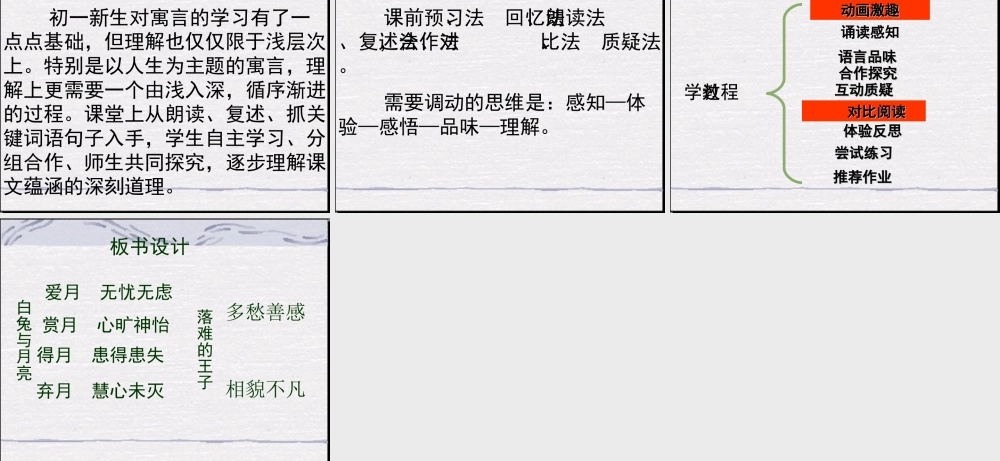 初一新生对寓言的学习有了一
点点基础，但理解也仅仅限于浅层次
上。特别是以人生为主题的寓言，理
解上更需要一个由浅入深，循序渐进
的过程。课堂上从朗读、复述、抓关
键词语句子入手，学生自主学习、分
组合作、师生共同探究，逐步理解课
文蕴涵的深刻道理。
课前预习法 回忆朗读法
、复述法 合作 对比法 质疑法
。
需要调动的思维是：感知—体
验—感悟—品味—理解。
学 过程
动画激趣
诵读感知
语言品味
合作探究
互动质疑
对比阅读
体验反思
尝试练习
推荐作业
板书设计
白兔与月亮
爱月 无忧无虑
赏月 心旷神怡
得月 患得患失
弃月 慧心未灭
落难的王子
多愁善感
相貌不凡